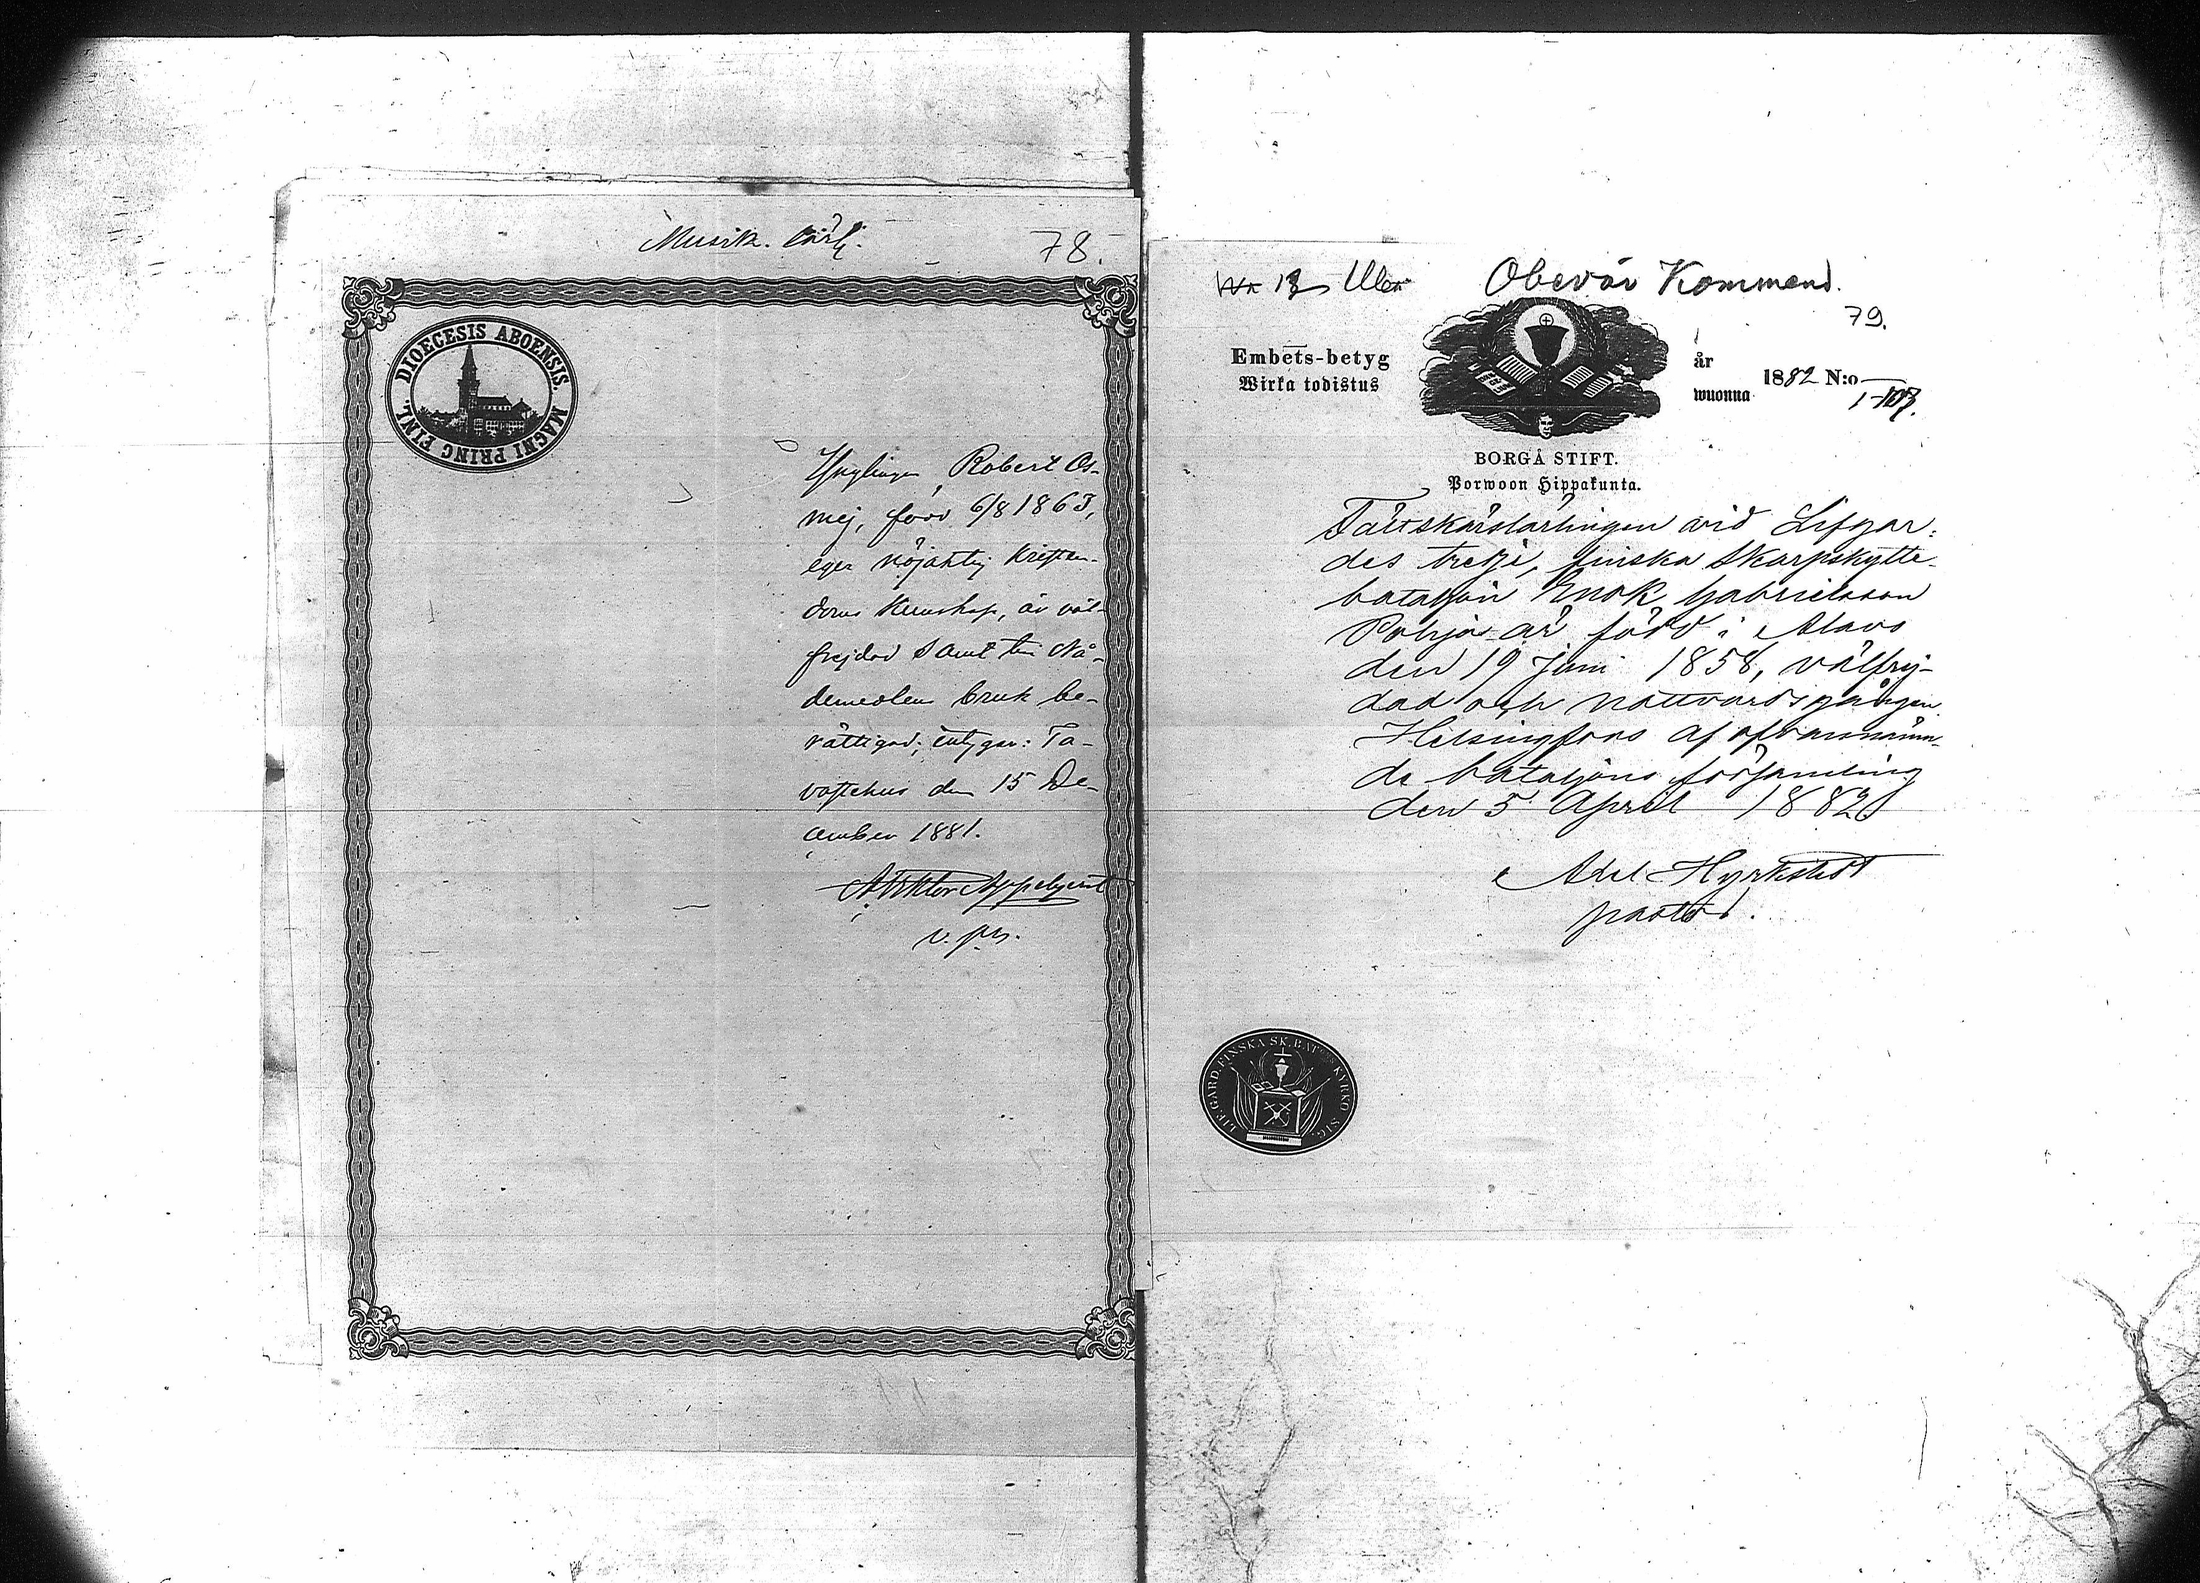 Musik. lärl.
78.
DIOECESIS ABOENSIS. MAGNI PRINC FINL.
Ynglingen Robert Os-
mej, född 6/8 1863,
eger nöjaktig kristen-
doms kunskap, är väl-
frejdad samt till Nå-
demedlens bruk be-
rättigad; intygar: Ta-
vastehus den 15 De-
cember 1881.
Viktor Appelqvist
v. p.
No 13 Ulea
Obevär Kommend.
79.
Embets-betyg
Wirka todistus
år
wuonna
1882 N:o
107.
BORGÅ STIFT.
Porwoon Hippakunta.
Fältskärslärlingen vid Lifgar-
des tredje, finska Skarpskytte-
bataljon Enok Gabrielsson
Pohja är född i Alavo
den 19 Juni 1858, välfrej-
dad och nattvardsgången.
Helsingfors af ofvannämn-
de bataljons församling
den 5 April 1882
Axel Hyrkstedt
pastor.
LIF.GARD. FINSKA SK. BAT. KYRKO SIG.